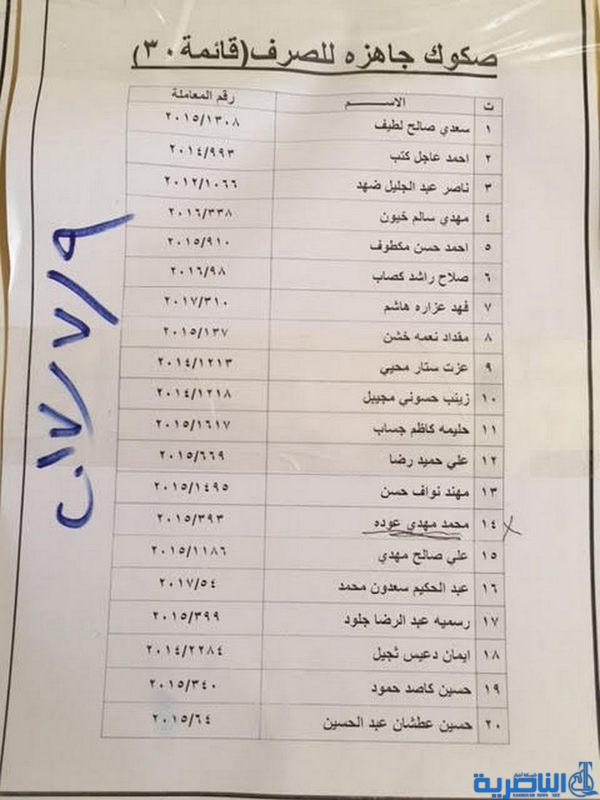 صكوك جاهزه للصرف(قائمة٣٠)
ت الاســـم رقم المعاملة
١ سعدي صالح لطيف ٢٠١٥/١٣٠٨
٢ احمد عاجل كتب ٢٠١٤/٩٩٣
٣ ناصر عبد الجليل ضهد ٢٠١٢/١٠٦٦
٤ مهدي سالم خيون ٢٠١٦/٣٣٨
٥ احمد حسن مكطوف ٢٠١٥/٩١٠
٦ صلاح راشد كصاب ٢٠١٦/٩٨
٧ فهد عزاره هاشم ٢٠١٧/٣١٠
٨ مقداد نعمه خشن ٢٠١٥/١٣٧
٩ عزت ستار محيي ٢٠١٤/١٢١٣
١٠ زينب حسوني مجيبل ٢٠١٤/١٢١٨
١١ حليمه كاظم جساب ٢٠١٥/١٦١٧
١٢ علي حميد رضا ٢٠١٥/٦٦٩
١٣ مهند نواف حسن ٢٠١٥/١٤٩٥
١٤ محمد مهدي عوده ٢٠١٥/٣٩٣
١٥ علي صالح مهدي ٢٠١٥/١١٨٦
١٦ عبد الحكيم سعدون محمد ٢٠١٧/٥٤
١٧ رسميه عبد الرضا جلود ٢٠١٥/٣٩٩
١٨ ايمان دعيس ثجيل ٢٠١٤/٢٢٨٤
١٩ حسين كاصد حمود ٢٠١٥/٣٤٠
٢٠ حسين عطشان عبد الحسين ٢٠١٥/٦٤
٢٠١٧/٧/٩
الناصرية